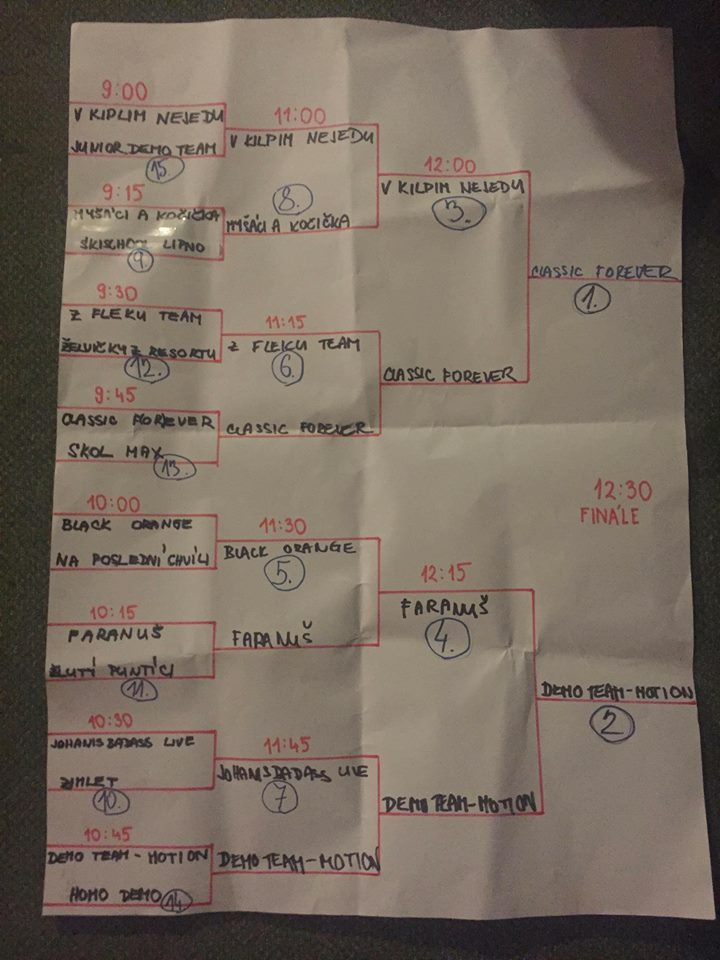 9:00
V KIPLIM NEJEDU
JUNIOR DEMO TEAM
15.
9:15
MYŠÁCI A KOČIČKA
SKISCHOOL LIPNO
9.
9:30
Z FLEKU TEAM
ŽELVIČKY Z RESORTU
12.
9:45
CLASSIC FOREVER
SKOL MAX
13.
10:00
BLACK ORANGE
NA POSLEDNÍ CHVÍLI
10:15
FARANUŠ
ŽLUTÍ PUNTÍCI
11.
10:30
JOHANISBADASS LIVE
10.
10:45
DEMO TEAM - MOTION
HOMO DEMO
14.
11:00
V KILPIM NEJEDU
8.
MYŠÁCI A KOČIČKA
11:15
Z FLEKU TEAM
6.
CLASSIC FOREVER
11:30
BLACK ORANGE
5.
FARANUŠ
11:45
JOHANISBADASS LIVE
7
DEMO TEAM-MOTION
12:00
V KILPIM NEJEDU
3.
CLASSIC FOREVER
12:15
FARANUŠ
4.
DEMO TEAM-MOTION
CLASSIC FOREVER
1.
12:30
FINÁLE
DEMO TEAM-MOTION
2